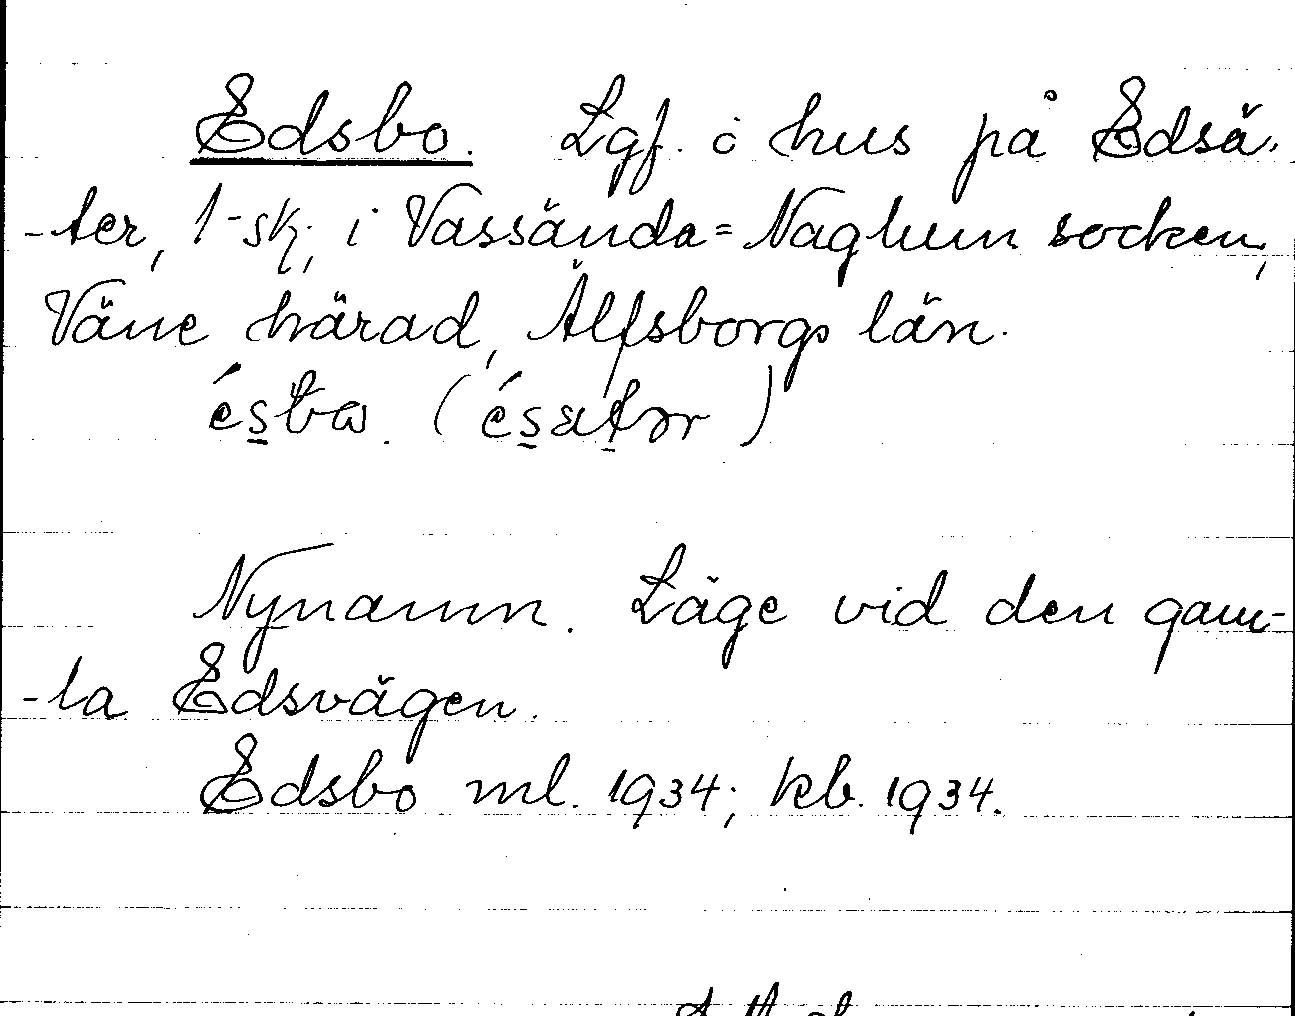 Edsbo. Lgf. o hus på Edsä-
-ter, 1-sk; i Vassända=Naglum socken,
Väne härad, Älfsborgs län.
Nynamn. Läge vid den gam-
-la Edsvägen.
Edsbo ml. 1934; kb. 1934.